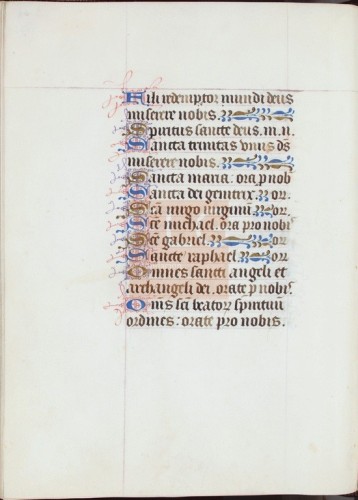 Fili redemptor mundi deus
miserere nobis.
Spiritus sancte deus. m. n.
Sancta trinitas vnus ds̄
miserere nobis.
Sancta maria. ora p nob
Sancta dei genitrix. or.
Sc̄a uirgo uirginū. or.
Sc̄e michael. ora pro nobꝰ
Sc̄e gabriel. or
Sancte raphael. or
Omnes sancti angeli et
archangeli dei. orate p nobiꝰ
Om̄s sc̄i beatoꝝ spirituū
ordines: orate pro nobis.